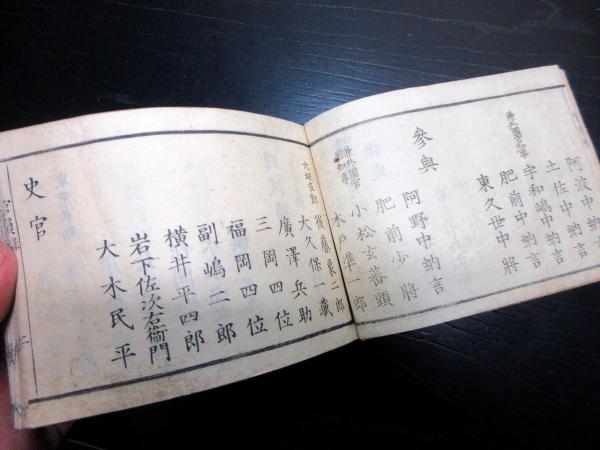 阿波中納言
土佐中納言
宇和嶋中納言
肥前中納言
兼外國官知事
東久世中將
參與
阿野中納言
肥前少將
小松玄蕃頭
兼外國官
副知事
木戸準一郎
後藤象二郎
大久保一藏
廣澤兵助
三岡四位
福岡四位
副嶋二郎
横井平四郎
岩下佐次右衞門
大木民平
史官